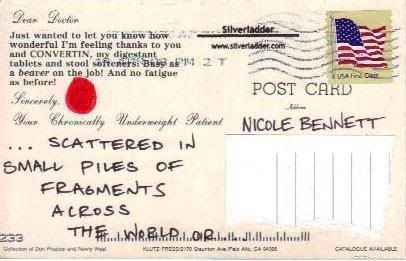 Dear Doctor
Just wanted to let you know how
wonderful I'm feeling thanks to you
and CONVERTIN, my digestant
tablets and stool softeners. Busy as
a beaver on the job! And no fatigue
as before!
Sincerely,
Your Chronically Underweight Patient
... SCATTERED IN
SMALL PILES OF
FRAGMENTS
ACROSS
THE WORLD OR...
233
Collection of Don Preziosi and Newly West
Silverladder
www.silverladder.com
PM 2 T
USA First Class
POST CARD
Address
NICOLE BENNETT
KLUTZ PRESS/2170 Staunton Ave., Palo Alto, CA 94306
CATALOGUE AVAILABLE